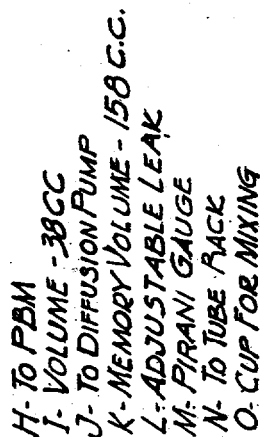 H- TO PBM
I- VOLUME - 38CC
J- TO DIFFUSION PUMP
K- MEMORY VOLUME - 158 C.C.
L- ADJUSTABLE LEAK
M- PIRANI GAUGE
N- TO TUBE RACK
O. CUP FOR MIXING